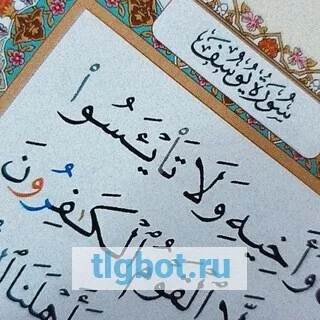 سُورَةُ يُوسُف
وَأَخِيهِ وَلَا تَا۟يْـَٔسُوا۟
الْقَوْمُ الْكَٰفِرُونَ
tlgbot.ru